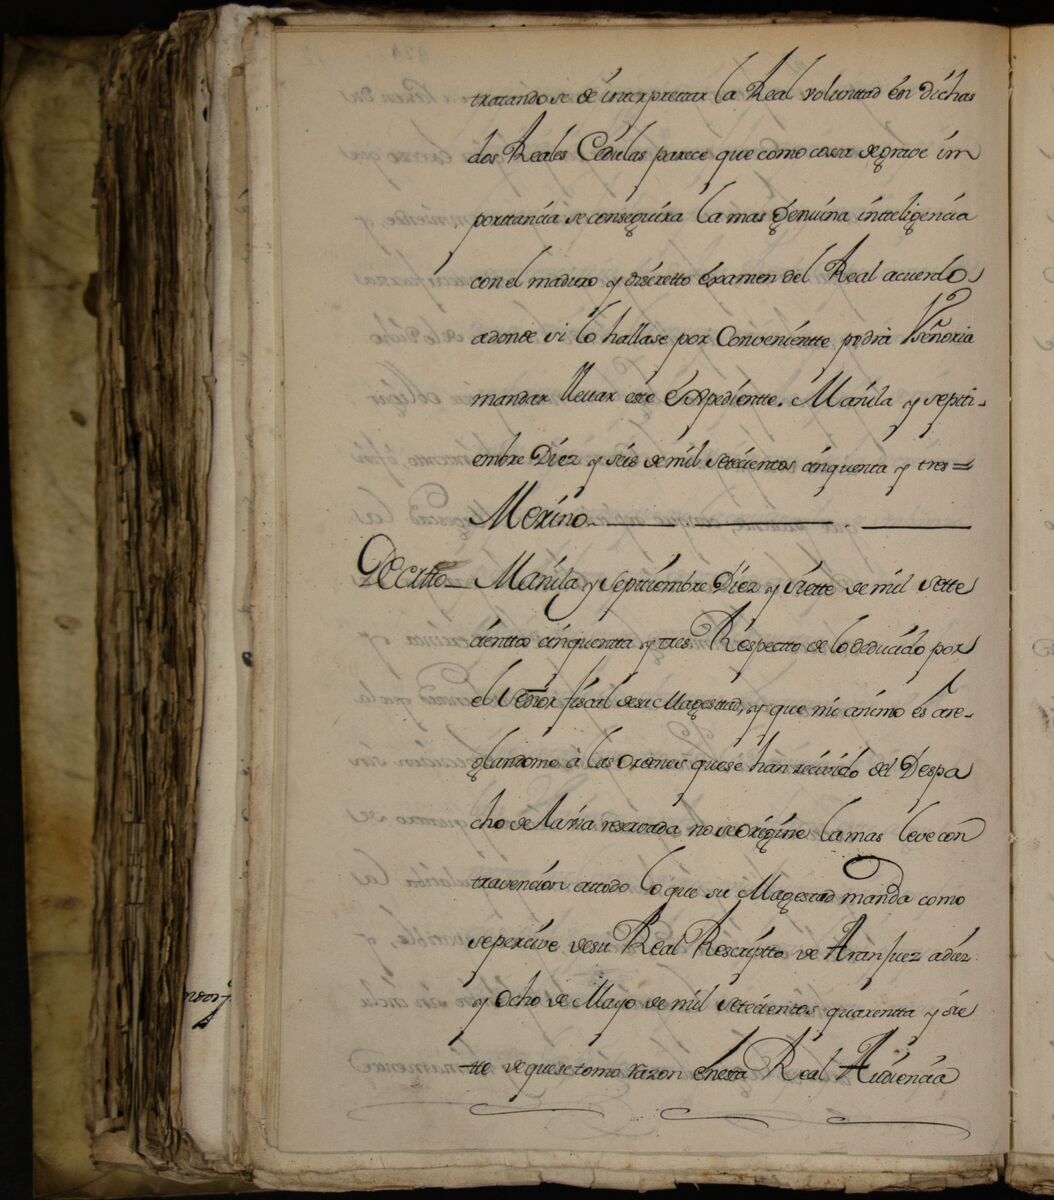 tratandose de interpretar la Real voluntad en dichas
dos Reales Cedulas parece que como cossa de grave im
porttancia se conseguira la mas genuina intteligencia
con el maduro y discretto examen del Real acuerdo
adonde si lo hallase por Convenientte podrá Vseñoria
mandar llevar este Expedientte. Manila y septti-
embre Diez y seis de mil setecientos cinquenta y tres=
Merino
Decretto Manila y Septtiembre Diez y siette de mil sette
cienttos cinquentta y tres Respectto de lo deducido por
el Señor fiscal de su Magesttad, y que mi animo es arre-
glandome à las ordenes que se han recivido del Despa
cho de la via reservada no se origine la mas leve con
travencion a ttodo lo que su Magestad manda como
se percive de su Real Rescriptto de Aranjuez a diez
y Ocho de Mayo de mil setecientos quarentta y sie
tte de que se tomo razon en esta Real Audiencia